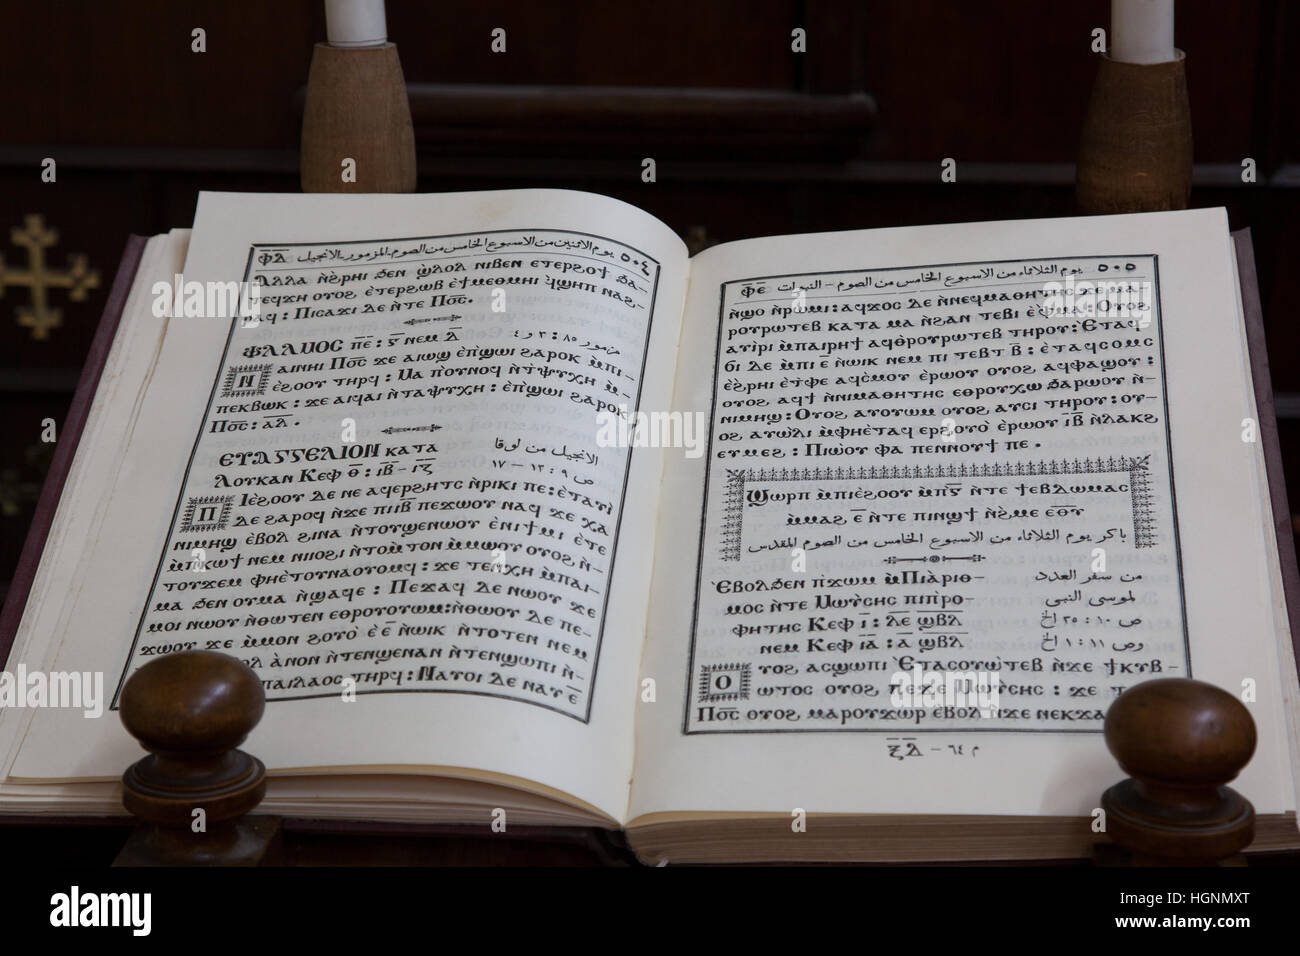 ⲫ̅ⲇ̅ يوم الاثنين من الاسبوع الخامس من الصوم - المزمور - الانجيل ٥٠٤
Ⲁⲗⲗⲁ ⲛ̀ϩⲣⲏⲓ ϧⲉⲛ ϣ̀ⲗⲟⲗ ⲛⲓⲃⲉⲛ ⲉⲧⲉⲣϩⲟϯ
ⲟⲩⲟϩ ⲉⲧⲉⲣϩⲱⲃ
: Ⲡⲓⲥⲁϫⲓ ⲇⲉ ⲛ̀ⲧⲉ Ⲡⲟ̅ⲥ̅.
ⲮⲀⲖⲘⲞⲤ ⲡ̅ⲉ̅ : ⲅ̅ ⲛⲉⲙ ⲇ̅ مزمور ٨٥ : ٣ و ٤
Ⲛⲁⲓ ⲛⲏⲓ Ⲡⲟ̅ⲥ̅ ϫⲉ ⲁⲓⲱϣ ⲉ̀ⲡ̀ϣⲱⲓ ϩⲁⲣⲟⲕ ⲙ̀ⲡⲓ-
ⲉ̀ϩⲟⲟⲩ ⲧⲏⲣϥ : Ⲙⲁ ⲡ̀ⲟⲩⲛⲟϥ ⲛ̀ⲧ̀ⲯⲩⲭⲏ ⲙ̀-
ⲡⲉⲕⲃⲱⲕ : ϫⲉ ⲁⲓϥⲁⲓ ⲛ̀ⲧⲁⲯⲩⲭⲏ : ⲉ̀ⲡ̀ϣⲱⲓ ϩⲁⲣⲟⲕ
Ⲡⲟ̅ⲥ̅ : ⲁ̅ⲗ̅.
ⲈⲨⲀⲄⲄⲈⲖⲒⲞⲚ ⲕⲁⲧⲁ الانجيل من لوقا
Ⲗⲟⲩⲕⲁⲛ Ⲕⲉⲫ ⲑ̅ : ⲓ̅ⲃ̅ - ⲓ̅ⲍ̅ ص ٩ : ١٢ - ١٧
Ⲡⲓⲉ̀ϩⲟⲟⲩ ⲇⲉ ⲛⲉ ⲁϥⲉⲣϩⲏⲧⲥ ⲛ̀ⲣⲓⲕⲓ ⲡⲉ : ⲉⲧⲁⲩⲓ̀
ⲇⲉ ϩⲁⲣⲟϥ ⲛ̀ϫⲉ ⲡⲓⲓ̅ⲃ̅ ⲡⲉϫⲱⲟⲩ ⲛⲁϥ ϫⲉ ⲭⲁ
ⲛⲓⲙⲏϣ ⲉ̀ⲃⲟⲗ ϩⲓⲛⲁ ⲛ̀ⲧⲟⲩϣⲉⲛⲱⲟⲩ ⲉ̀ⲛⲓϯⲙⲓ ⲉⲧⲉ
ⲙ̀ⲡⲕⲱϯ ⲛⲉⲙ ⲛⲓⲓⲟϩⲓ ⲛ̀ⲧⲟⲩⲙ̀ⲧⲟⲛ ⲙ̀ⲙⲱⲟⲩ ⲟⲩⲟϩ ⲛ̀-
ⲧⲟⲩϫⲉⲙ ⲫⲏⲉ̀ⲧⲟⲩⲛⲁⲟⲩⲟⲙϥ : ϫⲉ ⲧⲉⲛⲭⲏ ⲙ̀ⲡⲁⲓ-
ⲙⲁ ϧⲉⲛ ⲟⲩⲙⲁ ⲛ̀ϣⲁϥⲉ : Ⲡⲉϫⲁϥ ⲇⲉ ⲛⲱⲟⲩ ϫⲉ
ⲙⲟⲓ ⲛⲱⲟⲩ ⲛ̀ⲑⲱⲧⲉⲛ ⲉⲑⲣⲟⲩⲟⲩⲱⲙ : ⲛ̀ⲑⲱⲟⲩ ⲇⲉ ⲡⲉ-
ϫⲱⲟⲩ ϫⲉ ⲙ̀ⲙⲟⲛ ϩⲟⲩⲟ̀ ⲉ̀ⲉ̅ ⲛ̀ⲱⲓⲕ ⲛ̀ⲧⲟⲧⲉⲛ ⲛⲉⲙ
ⲁⲛⲟⲛ ⲛ̀ⲧⲉⲛϣⲉⲛⲁⲛ ⲛ̀ⲧⲉⲛϣⲱⲡⲓ ⲛ̀-
ⲡⲁⲓⲗⲁⲟⲥ ⲧⲏⲣϥ : Ⲛⲁⲩⲟⲓ ⲇⲉ ⲛⲁⲩ ⲉ̅
ⲫ̅ⲉ̅ يوم الثلاثاء من الاسبوع الخامس من الصوم - النبوات ٥٠٥
ⲛ̀ϣⲟ ⲛ̀ⲣⲱⲙⲓ : ⲁϥϫⲟⲥ ⲇⲉ ⲛ̀ⲛⲉϥⲙⲁⲑⲏⲧⲏⲥ ϫⲉ ⲙⲁ-
ⲣⲟⲩⲣⲱⲧⲉⲃ ⲕⲁⲧⲁ ⲙⲁ ⲛ̀ϩⲁⲛ ⲧⲉⲃⲓ ⲉϥⲙⲁ : Ⲟⲩⲟϩ
ⲁⲩⲓ̀ⲣⲓ ⲙ̀ⲡⲁⲓⲣⲏϯ ⲁϥⲑ̀ⲣⲟⲩⲣⲱⲧⲉⲃ ⲧⲏⲣⲟⲩ : Ⲉⲧⲁϥ-
ϭⲓ ⲇⲉ ⲙ̀ⲡⲓ ⲉ̅ ⲛ̀ⲱⲓⲕ ⲛⲉⲙ ⲡⲓ ⲧⲉⲃⲧ ⲃ̅ : ⲉⲧⲁϥⲥⲟⲙⲥ
ⲉ̀ϩ̀ⲣⲏⲓ ⲉ̀ⲧⲫⲉ ⲁϥⲥ̀ⲙⲟⲩ ⲉ̀ⲣⲱⲟⲩ ⲟⲩⲟϩ ⲁϥⲫⲁϣⲟⲩ :
ⲟⲩⲟϩ ⲁϥϯ ⲛ̀ⲛⲓⲙⲁⲑⲏⲧⲏⲥ ⲉⲑⲣⲟⲩⲭⲱ ϧⲁⲣⲱⲟⲩ ⲛ̀-
ⲛⲓⲙⲏϣ : Ⲟⲩⲟϩ ⲁⲩⲟⲩⲱⲙ ⲟⲩⲟϩ ⲁⲩⲥⲓ ⲧⲏⲣⲟⲩ : ⲟⲩ-
ⲟϩ ⲁⲩⲱ̀ⲗⲓ ⲙ̀ⲫⲏⲉ̀ⲧⲁϥ ⲉⲣϩⲟⲩⲟ̀ ⲉ̀ⲣⲱⲟⲩ ⲓ̅ⲃ̅ ⲛ̀ⲗⲁⲕϩ
ⲉⲩⲙⲉϩ : Ⲡⲓⲱ̀ⲟⲩ ⲫⲁ ⲡⲉⲛⲛⲟⲩϯ ⲡⲉ.
Ϣⲱⲣⲡ ⲙ̀ⲡⲓⲉ̀ϩⲟⲟⲩ ⲙ̀ⲡⲅ̅ ⲛ̀ⲧⲉ ϯⲉⲃⲇⲱⲙⲁⲥ
ⲙ̀ⲙⲁϩ ⲉ̅ ⲛ̀ⲧⲉ ⲡⲓⲛⲓϣϯ ⲛ̀ϩ̀ⲙⲉ ⲉ̅ⲑ̅ⲩ̅
باكر يوم الثلاثاء من الاسبوع الخامس من الصوم المقدس
Ⲉⲃⲟⲗϧⲉⲛ ⲡ̀ϫⲱⲙ ⲙ̀Ⲡⲓⲁ̀ⲣⲓⲑ- من سفر العدد
ⲙⲟⲥ ⲛ̀ⲧⲉ Ⲙⲱⲩ̀ⲥⲏⲥ ⲡⲓⲡ̀ⲣⲟ- لموسى النبى
ⲫⲏⲧⲏⲥ Ⲕⲉⲫ ⲓ̅ : ⲗ̅ⲉ̅ ϣ̅ⲃ̅ⲗ̅ ص ١٠ : ٣٥ الخ
ⲛⲉⲙ Ⲕⲉⲫ ⲓ̅ⲁ̅ : ⲁ̅ ϣ̅ⲃ̅ⲗ̅ وص ١١ : ١ الخ
Ⲟⲩⲟϩ ⲁⲥϣⲱⲡⲓ Ⲉⲧⲁⲥⲟⲩⲱ̀ⲧⲉⲃ ⲛ̀ϫⲉ ϯⲕⲩⲃ-
ⲱⲧⲟⲥ ⲟⲩⲟϩ ⲡⲉϫⲉ Ⲙⲱⲩ̀ⲥⲏⲥ : ϫⲉ
Ⲡⲟ̅ⲥ̅ ⲟⲩⲟϩ ⲙⲁⲣⲟⲩϫⲱⲣ ⲉ̀ⲃⲟⲗ ⲛ̀ϫⲉ
ⲝ̅ⲇ̅ - ٦٤ م
alamy
Image ID: HGNMXT
www.alamy.com